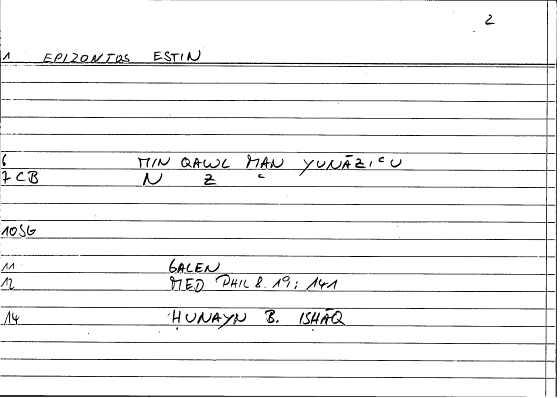 2
1 EPIZONTOS ESTIN
6 MIN QAWL MAN YUNĀZIꜤU
7 CB N Z Ꜥ
10 SG
11 GALEN
12 MED PHIL 8. 19; 141
14 ḤUNAYN B. ISḤĀQ